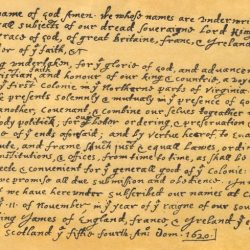 name of god Amen· We whose names are underwri
all subiects of our dread soueraigne Lord King
grace of god, of great britaine, franc, & Ireland
or of yᵉ faith, &c
undertaken, for yᵉ glorie of god, and advancem
ristian, and honour of our king & countrie, a voy
first colonie in yᵉ Northerne parts of virginia
presents solemnly & mutualy in yᵉ presence of G
other, couenant, & combine our selues togeather
body politick, for our better ordering, & preseruation
of yᵉ ends aforesaid; and by vertue hearof to
ute, and frame shuch just & equall lawes, ordin
nstitutions, & offices, from time to time, as shall be
& conuenient for yᵉ generall good of yᵉ Colonie:
promise all due submission and obedience. In wi
we haue hereunder subscribed our names at
11· of Nouember, in yᵉ year of yᵉ raigne of our soue
King James of England, franc, & Ireland yᵉ
Scotland yᵉ fiftie fourth. Ano: Dom. 1620.